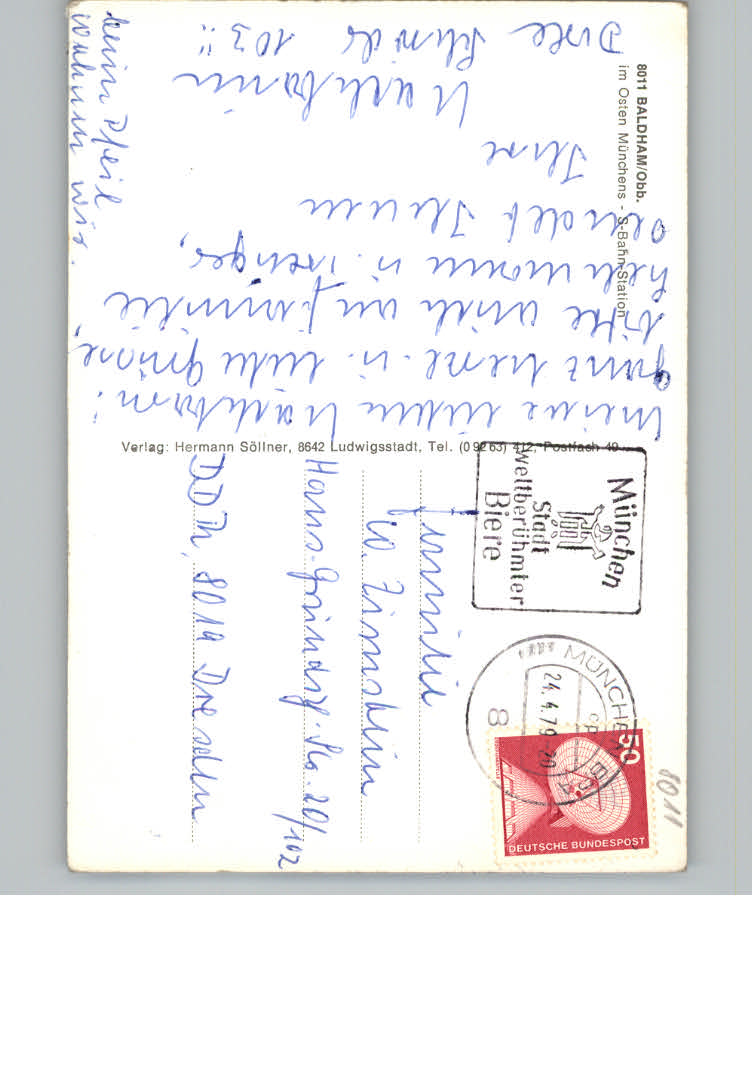 8011 BALDHAM/Obb.
im Osten Münchens - S-Bahn-Station
Meine lieben Nachbarn!
ganz herzl. u. liebe Grüsse,
bitte auch an Familie
u.
sendet Ihnen
Ihre
Nachbarin
103!!
beim Pfeil
wohnen wir.
Verlag: Hermann Söllner, 8642 Ludwigsstadt, Tel. (0 92 63) 412, Postfach 49
München
Stadt
weltberühmter
Biere
MÜNCHEN
24.4.79-20
8
50
DEUTSCHE BUNDESPOST
8011
Familie
W.
Hans-Grundig-Str. 20/102
DDR, 8019 Dresden